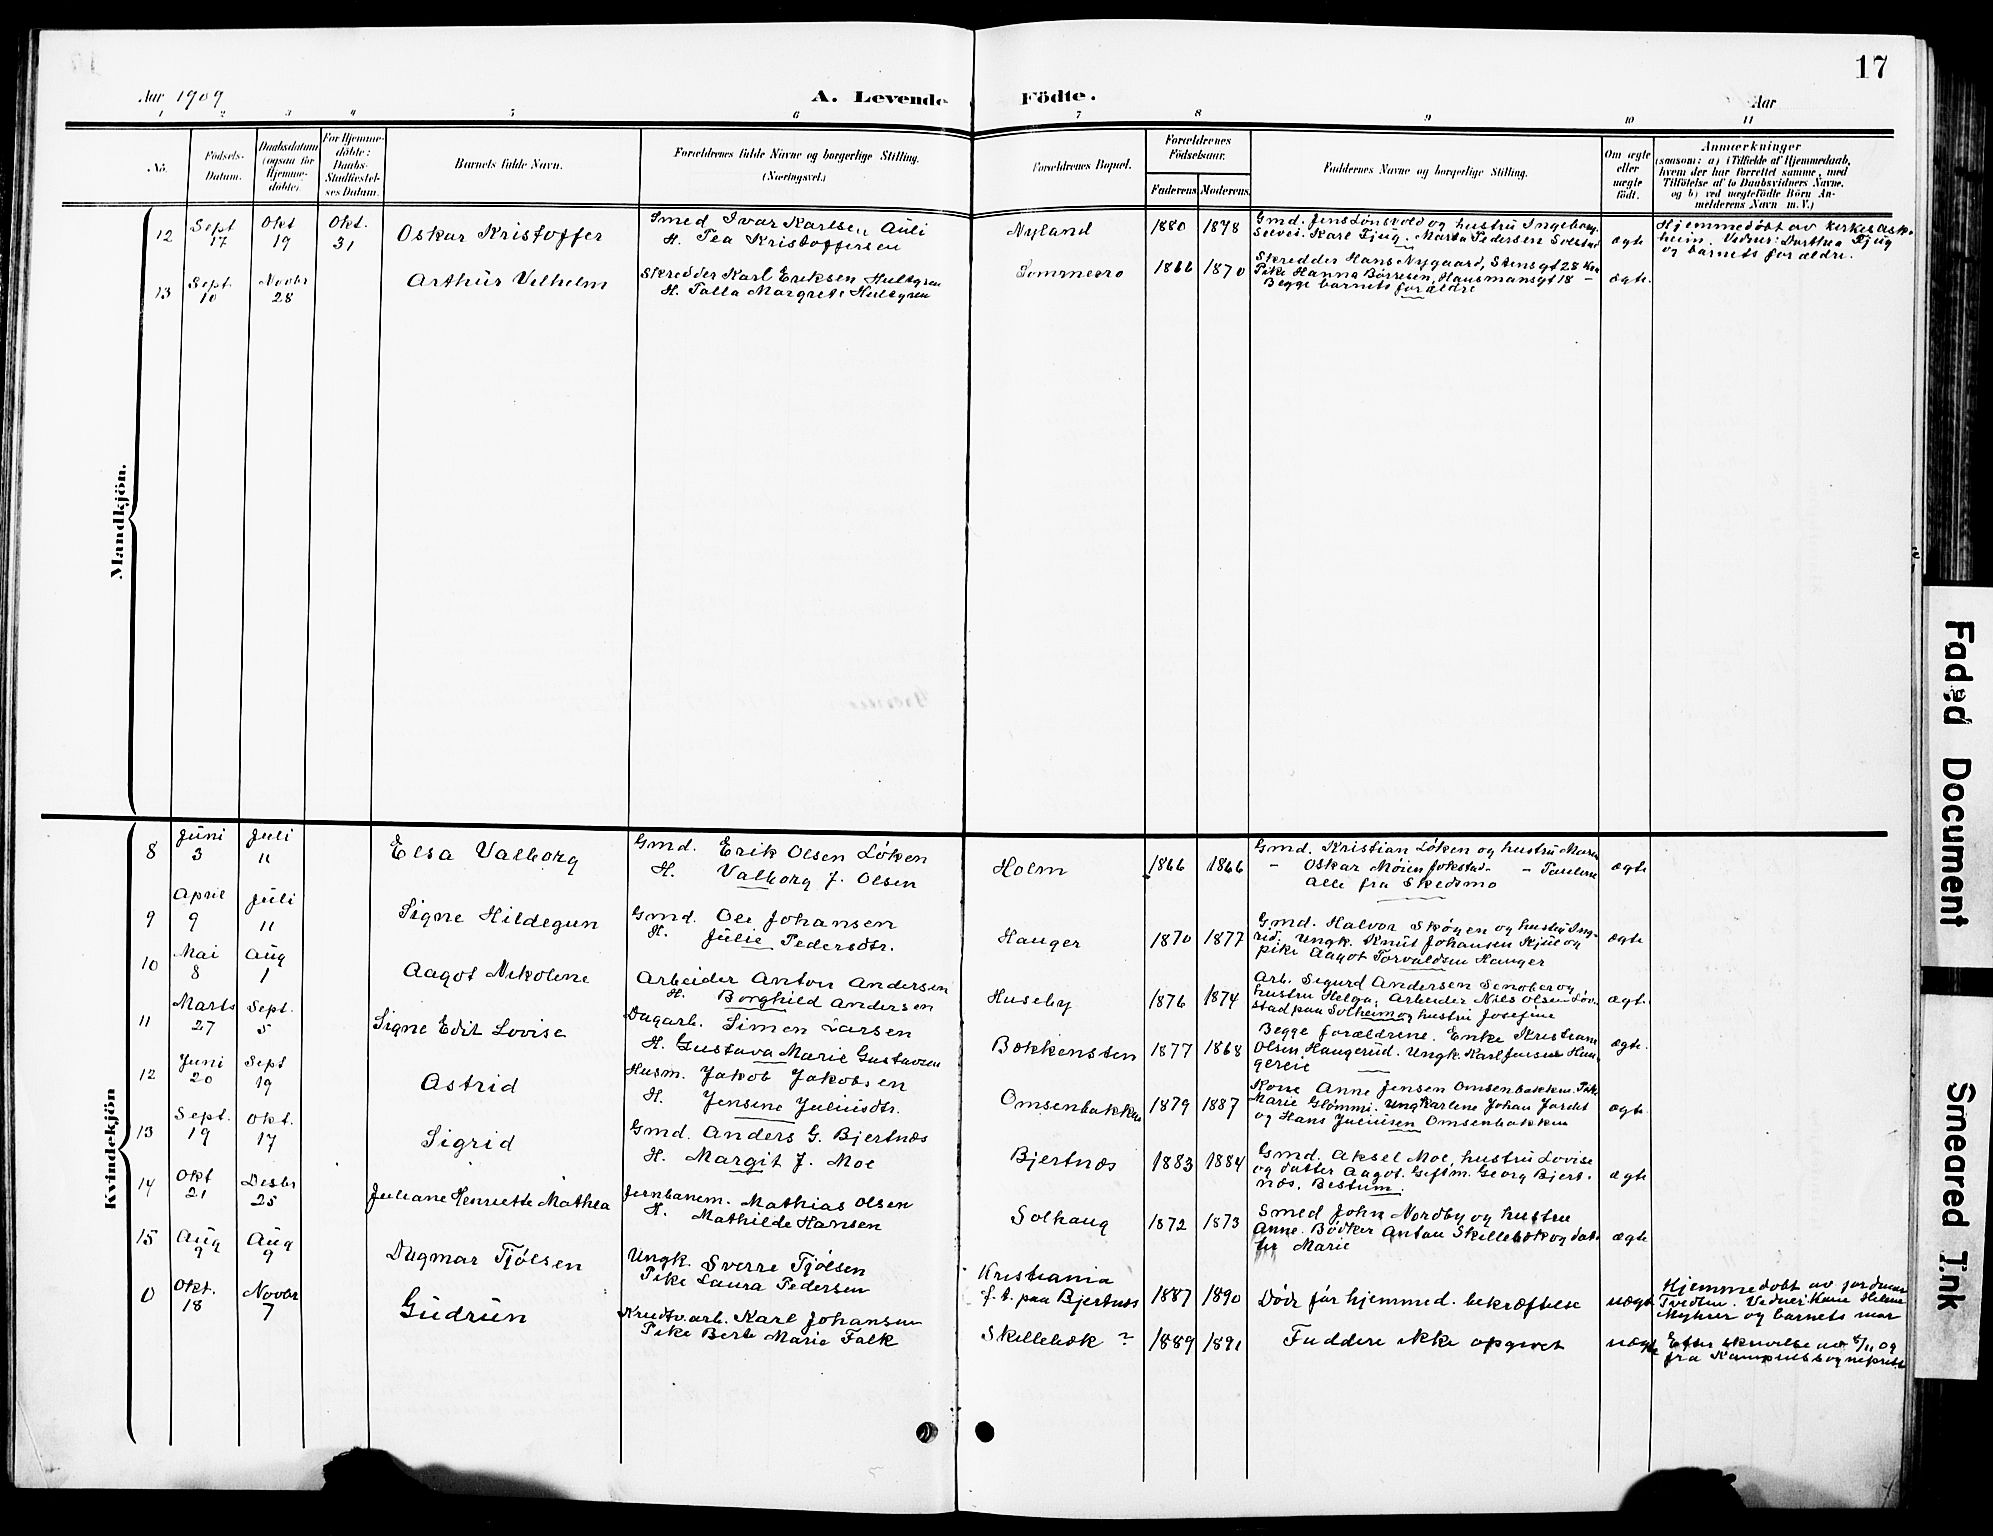 17
Aar 1909
A. Levende Födte.
Aar
1 2 3 4 5 6 7 8 9 10 11
No.
Födsels-Datum.
Daabsdatum (ogsaa for Hjemme-döbte).
For Hjemme-döbte: Daabs-Stadfæstel-ses Datum.
Barnets fulde Navn.
Forældrenes fulde Navne og borgerlige Stilling. (Næringsvei.)
Forældrenes Bopæl.
Forældrenes Födselsaar.
Faderens. Moderens.
Faddernes Navne og borgerlige Stilling.
Om ægte eller uægte födt.
Anmærkninger (saasom: a) Tilfælde af Hjemmedaab, hvem der har forrettet samme, med Tilföielse af to Daabsvidners Navne, og b) ved uægtefödte Börn An-melderens Navn m. V.)
Mandkjön.
12 Sept 17 Okt 19 Okt. 31 Oskar Kristoffer
Smed Ivar Karlsen Auli
H. Tea Kristoffersen
Nyland 1880 1878
Gmd. Jens Lønskold og hustru Ingeborg
Karl Fjug. Marta Pedersen Solstad
ægte
Hjemmedøbt av kirkes. Ask-
heim. Vidner: Dorthea Fjug
og barnets forældre.
13 Sept. 10 Novbr 28 Arthur Vilhelm
Skredder Karl Eriksen Hultgren
H. Talla Margrete Hultgren
Sommerro 1866 1870
Skredder Hans Nygaard, Stensgt 28 Kra
Pike Hanna Børresen, Hausmansgt 18 –
Begge barnets forældre
ægte.
Kvindekjön
8 Juni 3 Juli 11 Elsa Valborg
Gmd. Erik Olsen Løken
H. Valborg J. Olsen
Holm 1866 1866
Gmd. Kristian Løken og hustru Maren
– Oskar Møien Jokstad – – Pauline
Alle fra Skedsmo
ægte
9 April 9 Juli 11 Signe Hildegun
Gmd. Ole Johansen
H. Julie Pedersdtr.
Hauger 1870 1877
Gmd. Halvor Skøyen og hustru Ing-
rid. Ungk. Knut Johansen Hjue og
pike Aagot Torvaldsen Hauger
ægte
10 Mai 8 Aug 1 Aagot Nikoline
Arbeider Anton Andersen
H. Borghild Andersen
Huseby 1876 1874
Arb. Sigurd Andersen Senober og
hustru Helga, Arbeider Nils Olsen Løv-
stad paa Solheim og hustru Josefine
ægte.
11 Marts 27 Sept. 5 Signe Edit Lovise
Dagarb. Simen Larsen
H. Gustava Marie Gustavsen
Bækkensten 1877 1868
Begge forældrene. Enke Kristiane
Olsen Haugerud. Ungk. Karl Jensen Hau-
gereie
ægte.
12 Juni 20 Sept 19 Astrid
Husm. Jakob Jakobsen
H. Jensine Juliusdtr.
Omsenbakken 1879 1887
Kone Anne Jensen Omsenbakken. Pike
Marie Glømmi. Ungkarlene Johan Jordet
og Hans Juliusen Omsenbakken
ægte
13 Sept. 19 Okt. 17 Sigrid
Gmd. Anders G. Bjertnæs
H. Margit J. Moe
Bjertnæs 1883 1884
Gmd. Aksel Moe, hustru Lovise
og datter Aagot. Giftm. Georg Bjert-
næs, Bestum.
ægte
14 Okt 21 Desbr 25 Juliane Henriette Mathea
Jernbanem. Mathias Olsen
H. Mathilde Hansen
Solhaug 1872 1873
Smed John Nordby og hustru
Anne. Bødker Anton Skillebæk og dat-
ter Marie
ægte
15 Aug 9 Aug 9 Dagmar Tjølsen
Ungk. Sverre Tjølsen
Pike Laura Pedersen
Kristiania
f. t. paa Bjertnæs 1887 1890
Døde før hjemmed. bekræftelse
uægte
Hjemmedøbt av jordmor
Tvedten. Vidner: Kone Helene
Myhrer og barnets mor
0 Okt. 18 Novbr 7 Gudrun
Krudtv.arb. Karl Johansen
Pike Berte Marie Falk
Skillebæk ? 1889 1891
Faddere ikke opgivet
uægte
Efter skrivelse av 8/11 09
fra Kampens sogneprest
Faded Document
Smeared Ink